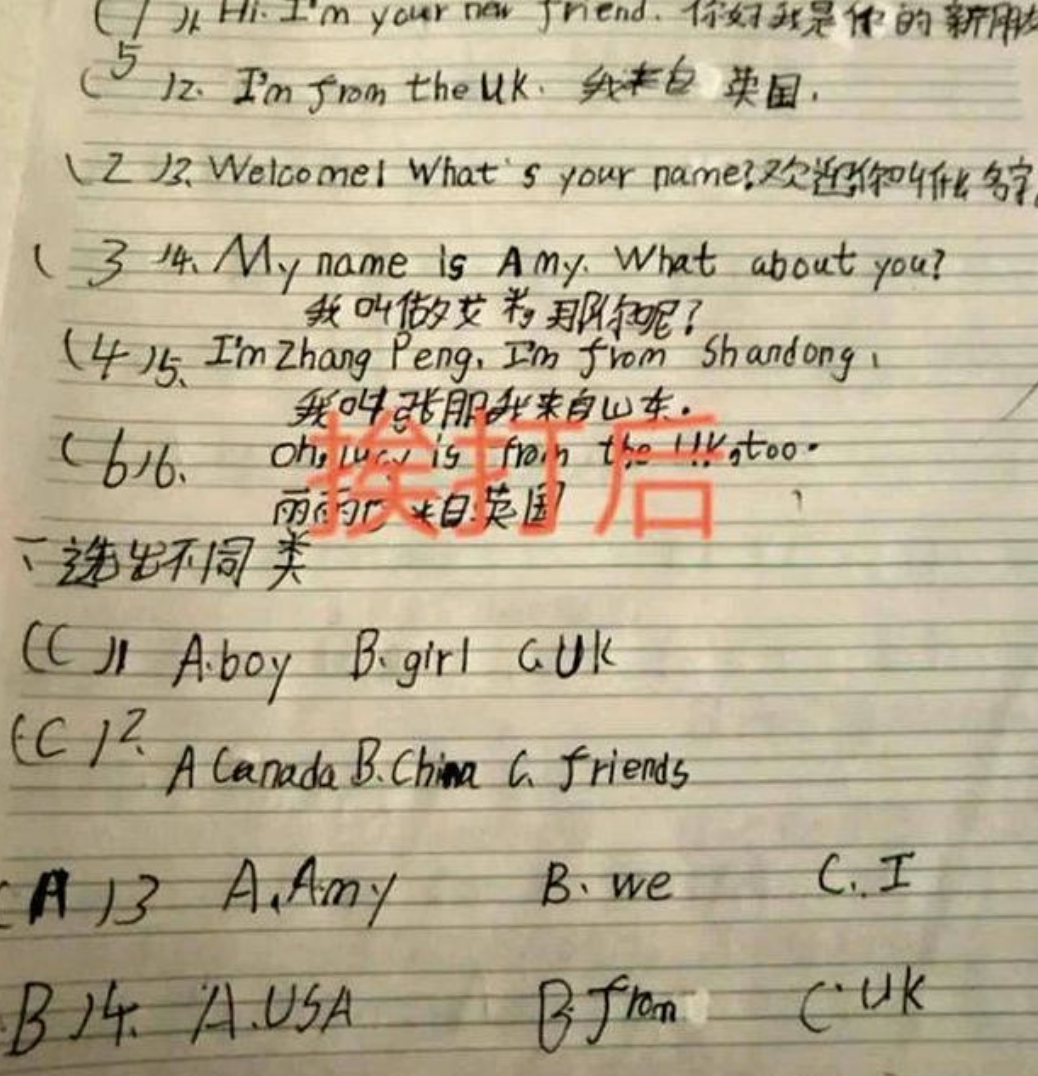 (1)1. Hi. I'm your new friend. 你好我是你的新朋
(5)2. I'm from the UK. 我来自 英国.
(2)3. Welcome! What's your name? 欢迎你叫什么名字
(3)4. My name is Amy. What about you?
我叫做艾米,那你呢?
(4)5. I'm Zhang Peng. I'm from Shandong.
我叫张朋我来自山东.
(6)6. oh, lucy is from the UK, too.
丽丽 来自英国
挨打后
、选出不同类
(C)1 A.boy B.girl C.UK
(C)2. A Canada B.China C. friends
(A)3 A.Amy B. we C. I
B)4. A.USA B.from C.UK